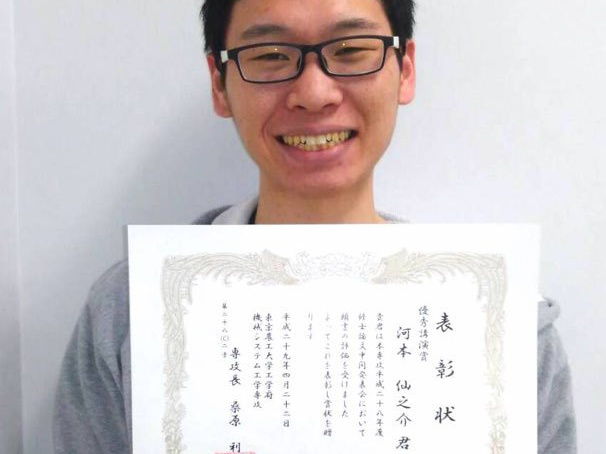 表彰状
優秀講演賞
河本 仙之介 君
貴君は本専攻平成二十八年度
修士論文中間発表会において
頭書の評価を受けました
よってこれを表彰し賞状を贈
ります
平成二十九年四月二十二日
東京農工大学工学府
機械システム工学専攻
専攻長 桑原 利
第二十八(C)二号